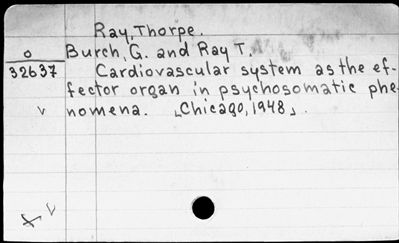 Ray, Thorpe.
o Burch, G. and Ray T.
32637 Cardiovascular system as the ef-
fector organ in psychosomatic phe-
v nomena. [Chicago, 1948].
v